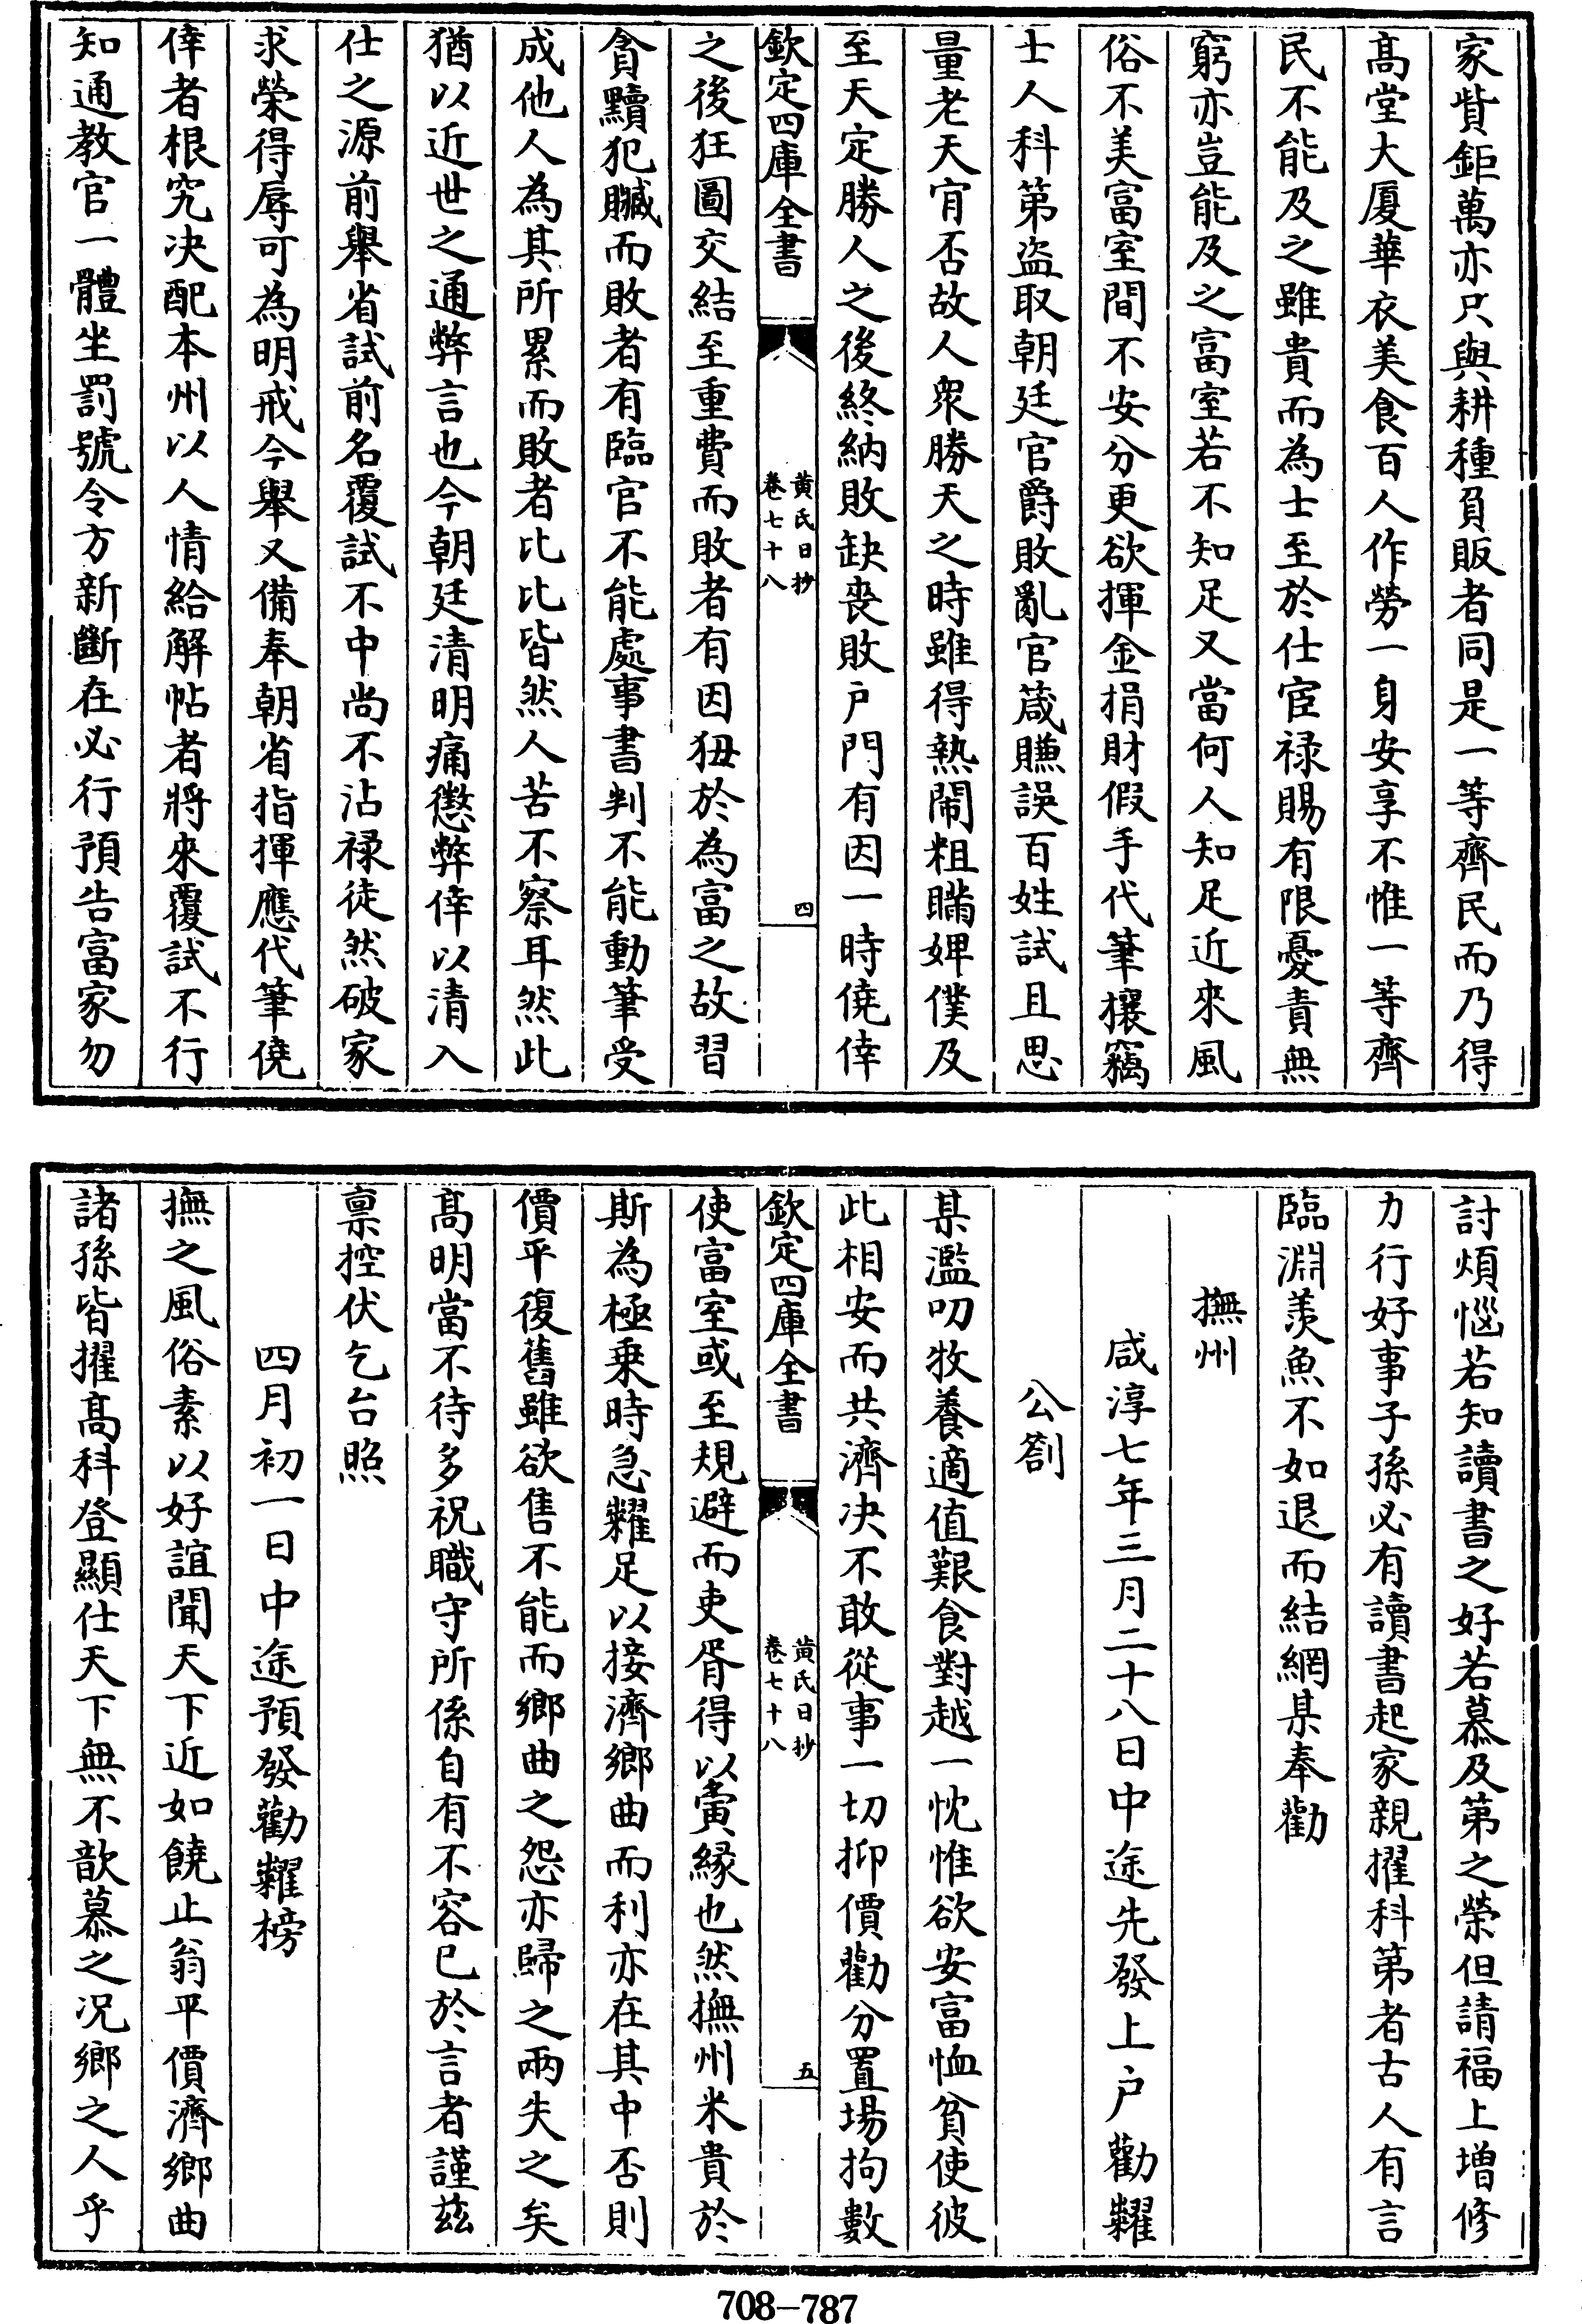 家貲鉅萬亦只與耕種負販者同是一等齊民而乃得
髙堂大厦華衣美食百人作勞一身安享不惟一等齊
民不能及之雖貴而為士至於仕宦禄賜有限憂責無
窮亦豈能及之富室若不知足又當何人知足近來風
俗不美富室間不安分更欲揮金捐財假手代筆攘竊
士人科第盗取朝廷官爵敗亂官箴賺誤百姓試且思
量老天宵否故人衆勝天之時雖得熱鬧粗瞞婢僕及
至天定勝人之後終納敗缺喪敗户門有因一時僥倖
欽定四庫全書
黄氏日抄
卷七十八
四
之後狂圖交結至重費而敗者有因狃於為富之故習
貪黷犯贓而敗者有臨官不能處事書判不能動筆受
成他人為其所累而敗者比比皆然人苦不察耳然此
猶以近世之通弊言也今朝廷清明痛懲弊倖以清入
仕之源前舉省試前名覆試不中尚不沾禄徒然破家
求榮得辱可為明戒今舉又備奉朝省指揮應代筆僥
倖者根究决配本州以人情給解帖者將來覆試不行
知通教官一體坐罰號令方新斷在必行預告富家勿
討煩惱若知讀書之好若慕及第之榮但請福上增修
力行好事子孫必有讀書起家親擢科第者古人有言
臨淵羨魚不如退而結網某奉勸
撫州
咸淳七年三月二十八日中途先發上户勸糶
公劄
某濫叨牧養適值艱食對越一忱惟欲安富恤貧使彼
此相安而共濟决不敢從事一切抑價勸分置場拘數
欽定四庫全書
黄氏日抄
卷七十八
五
使富室或至規避而吏胥得以夤緣也然撫州米貴於
斯為極乗時急糶足以接濟鄉曲而利亦在其中否則
價平復舊雖欲售不能而鄉曲之怨亦歸之兩失之矣
髙明當不待多祝職守所係自有不容已於言者謹兹
禀控伏乞台照
四月初一日中途預發勸糶榜
撫之風俗素以好誼聞天下近如饒止翁平價濟鄉曲
諸孫皆擢髙科登顯仕天下無不歆慕之况鄉之人乎
708-787